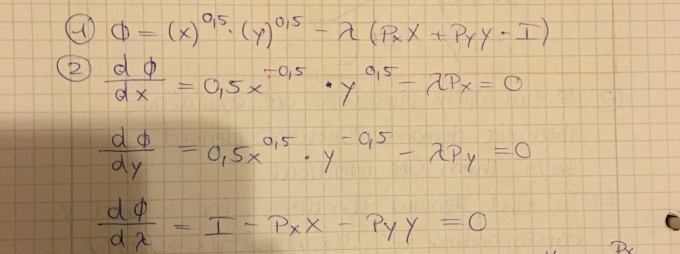 ① Φ = (x)^0,5 · (y)^0,5 - λ (PxX + PyY - I)
② dΦ/dx = 0,5x^-0,5 · y^0,5 - λPx = 0
dΦ/dy = 0,5x^0,5 · y^-0,5 - λPy = 0
dΦ/dλ = I - PxX - PyY = 0
Px